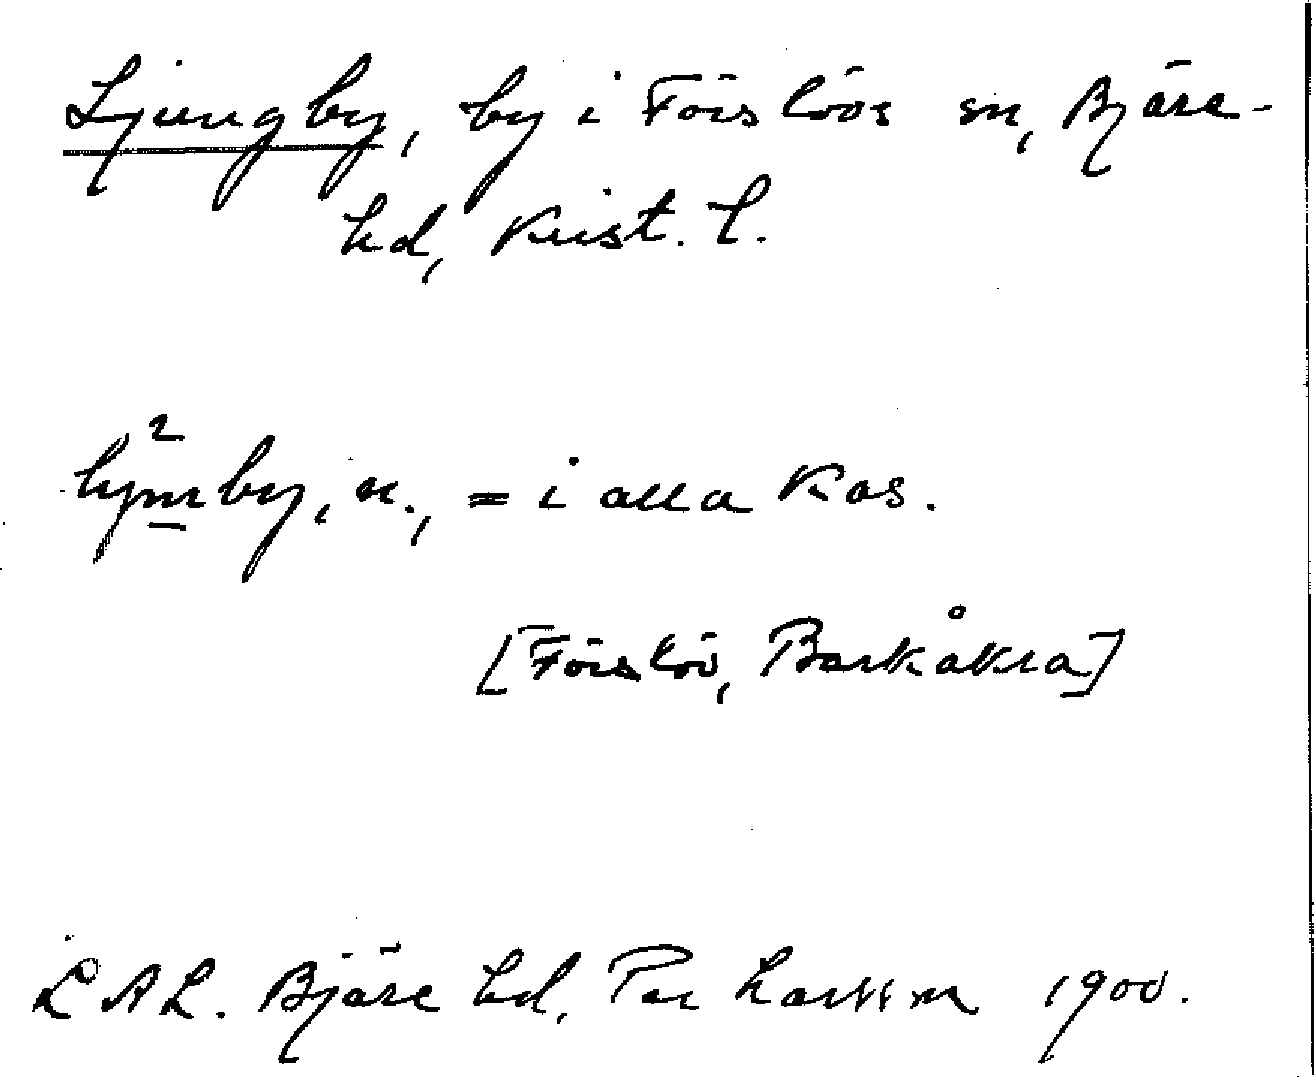 Ljungby, by i Förslövs sn, Bjäre
hd, Krist. l.
by, n., = i alla kas.
[Förslöv, Barkåkra]
LAL. Bjäre hd, Per Larsson 1900.